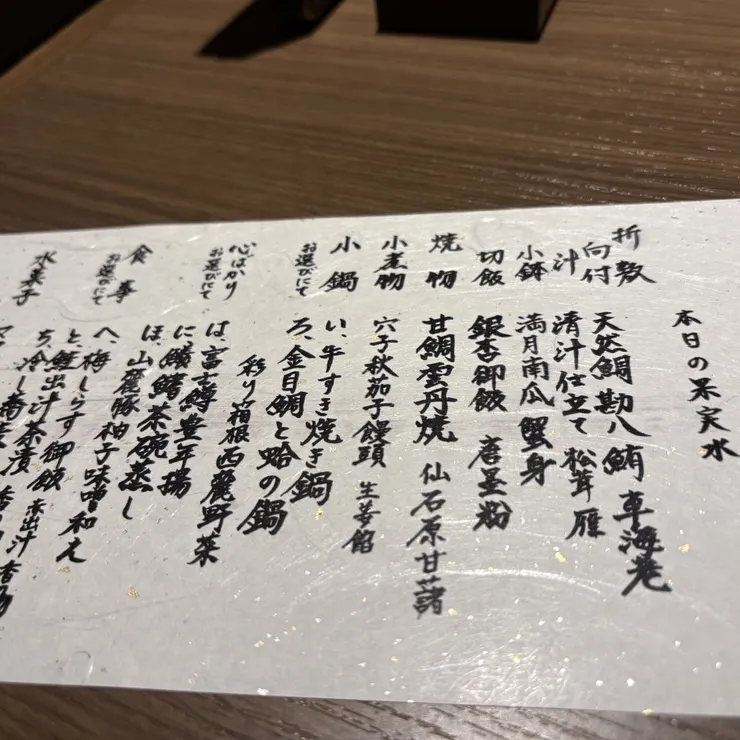 本日の果実水
折敷
向付 天然鯛 勘八 鮪 車海老
汁 清汁仕立て 松茸 雁
小鉢 満月南瓜 蟹身
切飯 銀杏御飯 唐墨粉
焼物 甘鯛雲丹焼 仙石原甘藷
小煮物 穴子秋茄子饅頭 生姜餡
小鍋 お選びにて い、牛すき焼き鍋
ろ、金目鯛と蛤の鍋
彩り箱根西麓野菜
心ばかり お選びにて は、富士鱒豊年揚
に、鱶鰭茶碗蒸し
ほ、山麓豚柚子味噌和え
食事 お選びにて へ、梅しらす御飯 赤出汁
と、鮭出汁茶漬 香の物
ち、冷し蕎麦
水菓子